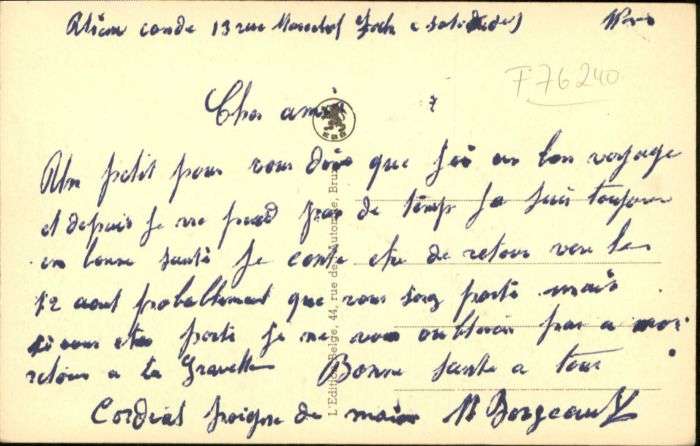 13 rue
F 76240
Cher ami
Un petit pour vous dire que j'ai un bon voyage
et depuis je ne perd pas de temp je suis toujour
en bonne santé je conte etre de retour vers le
12 aout probablement que vous serez parti mais
si vous etes parti je ne vous oublirai pas a mon
retour a la Gravelle Bonne sante a tous
Cordial poigne de main
L'Edition Belge, 44, rue de l'Automne, Bruxelles